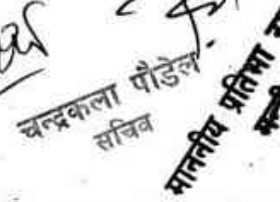 चन्द्रकला पौडेल
सचिव
माननीय प्रतिभा